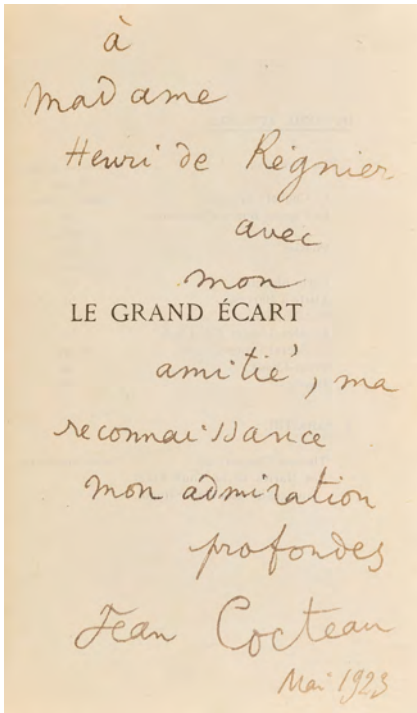 à
madame
Henri de Régnier
avec
mon
LE GRAND ÉCART
amitié, ma
reconnaissance
mon admiration
profondes
Jean Cocteau
Mai 1923